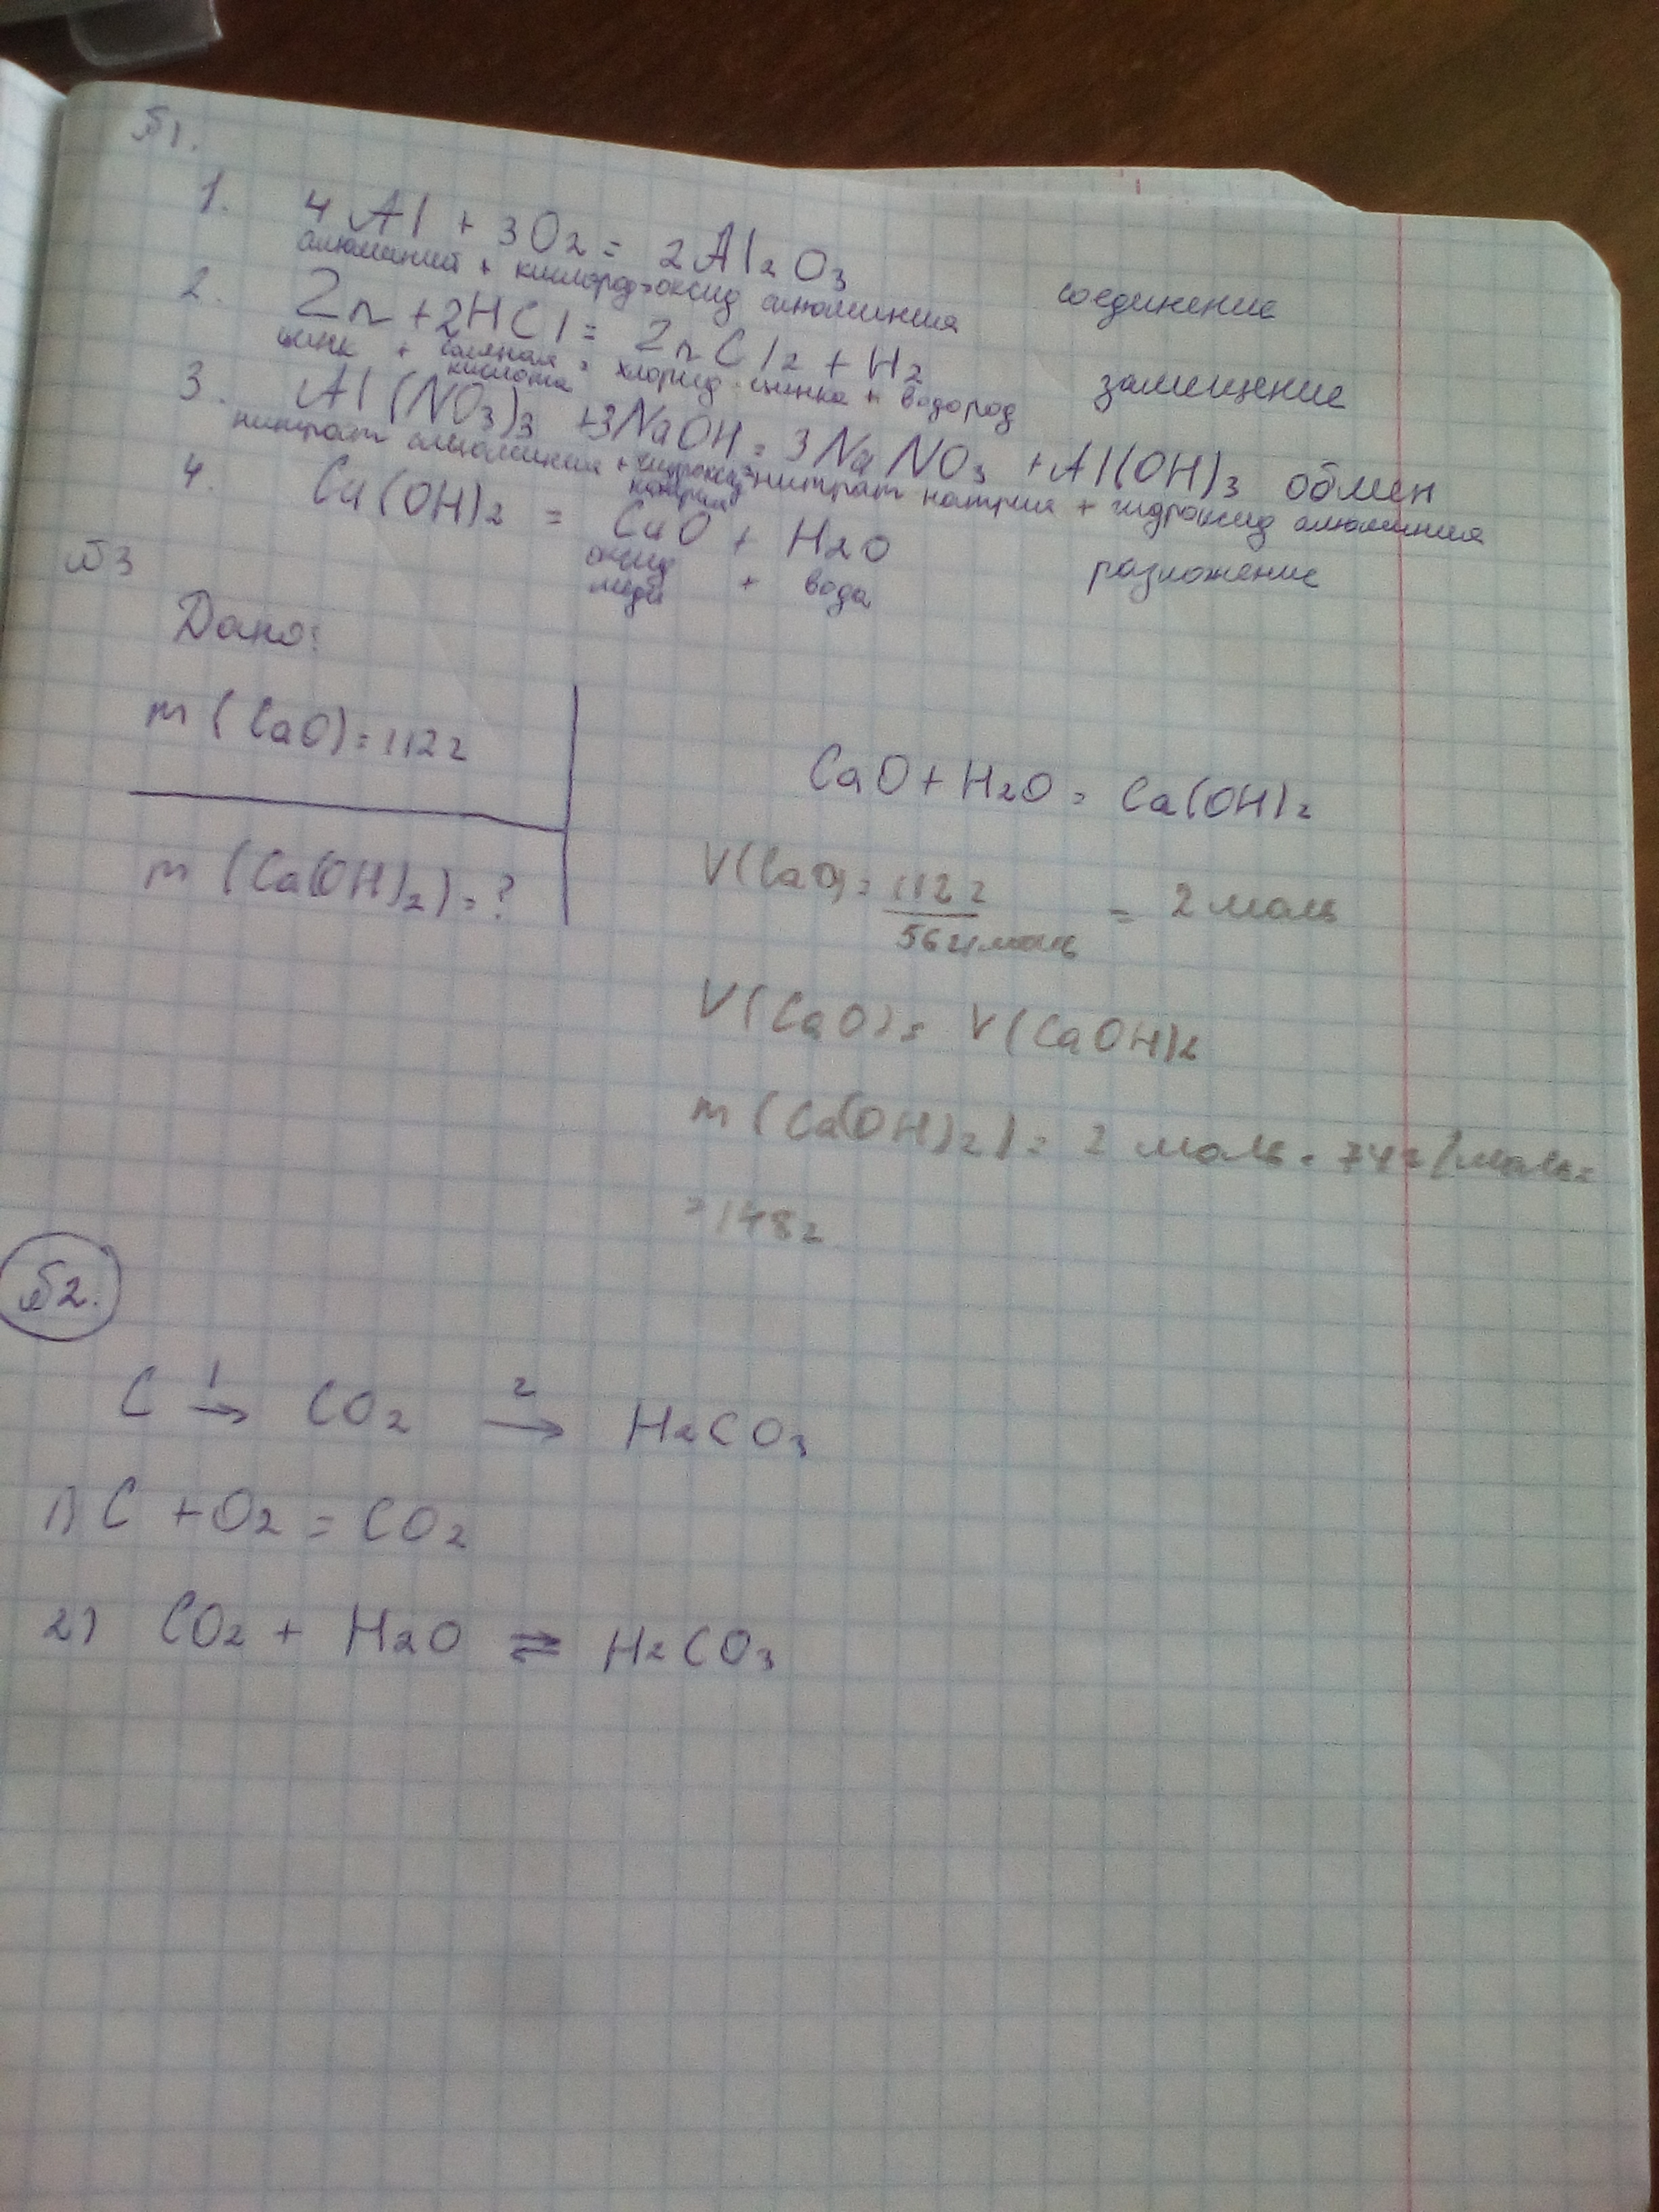 №1.
1. 4Al + 3O2 = 2Al2O3 соединение
алюминий + кислород = оксид алюминия
2. Zn + 2HCl = ZnCl2 + H2 замещение
цинк + соляная кислота = хлорид цинка + водород
3. Al(NO3)3 + 3NaOH = 3NaNO3 + Al(OH)3 обмен
нитрат алюминия + гидроксид натрия = нитрат натрия + гидроксид алюминия
4. Cu(OH)2 = CuO + H2O разложение
оксид меди + вода
№3
Дано:
m(CaO) = 112 г
m(Ca(OH)2) = ?
CaO + H2O = Ca(OH)2
V(CaO) = 112 г / 56 г/моль = 2 моль
V(CaO) = V(CaOH)2
m(Ca(OH)2) = 2 моль · 74 г/моль =
= 148 г
№2.
C →1 CO2 →2 H2CO3
1) C + O2 = CO2
2) CO2 + H2O ⇌ H2CO3